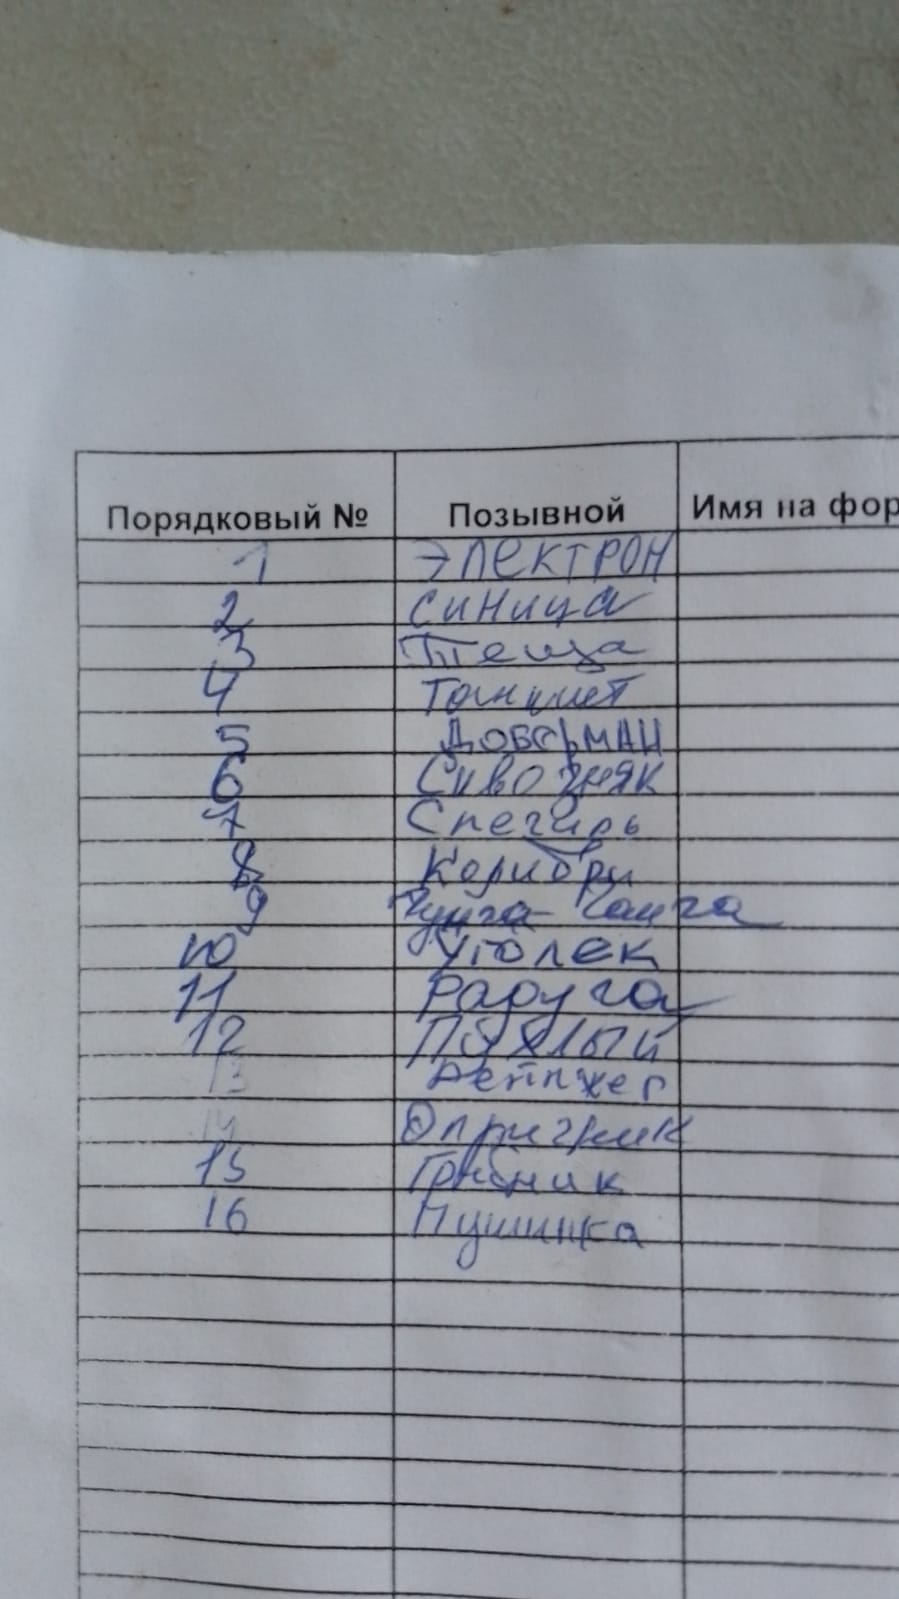 Порядковый № Позывной Имя на фор
1 ЭЛЕКТРОН
2 Синица
3 Теща
4
5 ДОБЕРМАН
6 Сквозняк
7 Снегирь
8 Колибри
9 Чунга-Чанга
10 Уголек
11 Радуга
12 ПУХЛЫЙ
13 Рейнжер
14 Опричник
15 Грибник
16 Пушинка